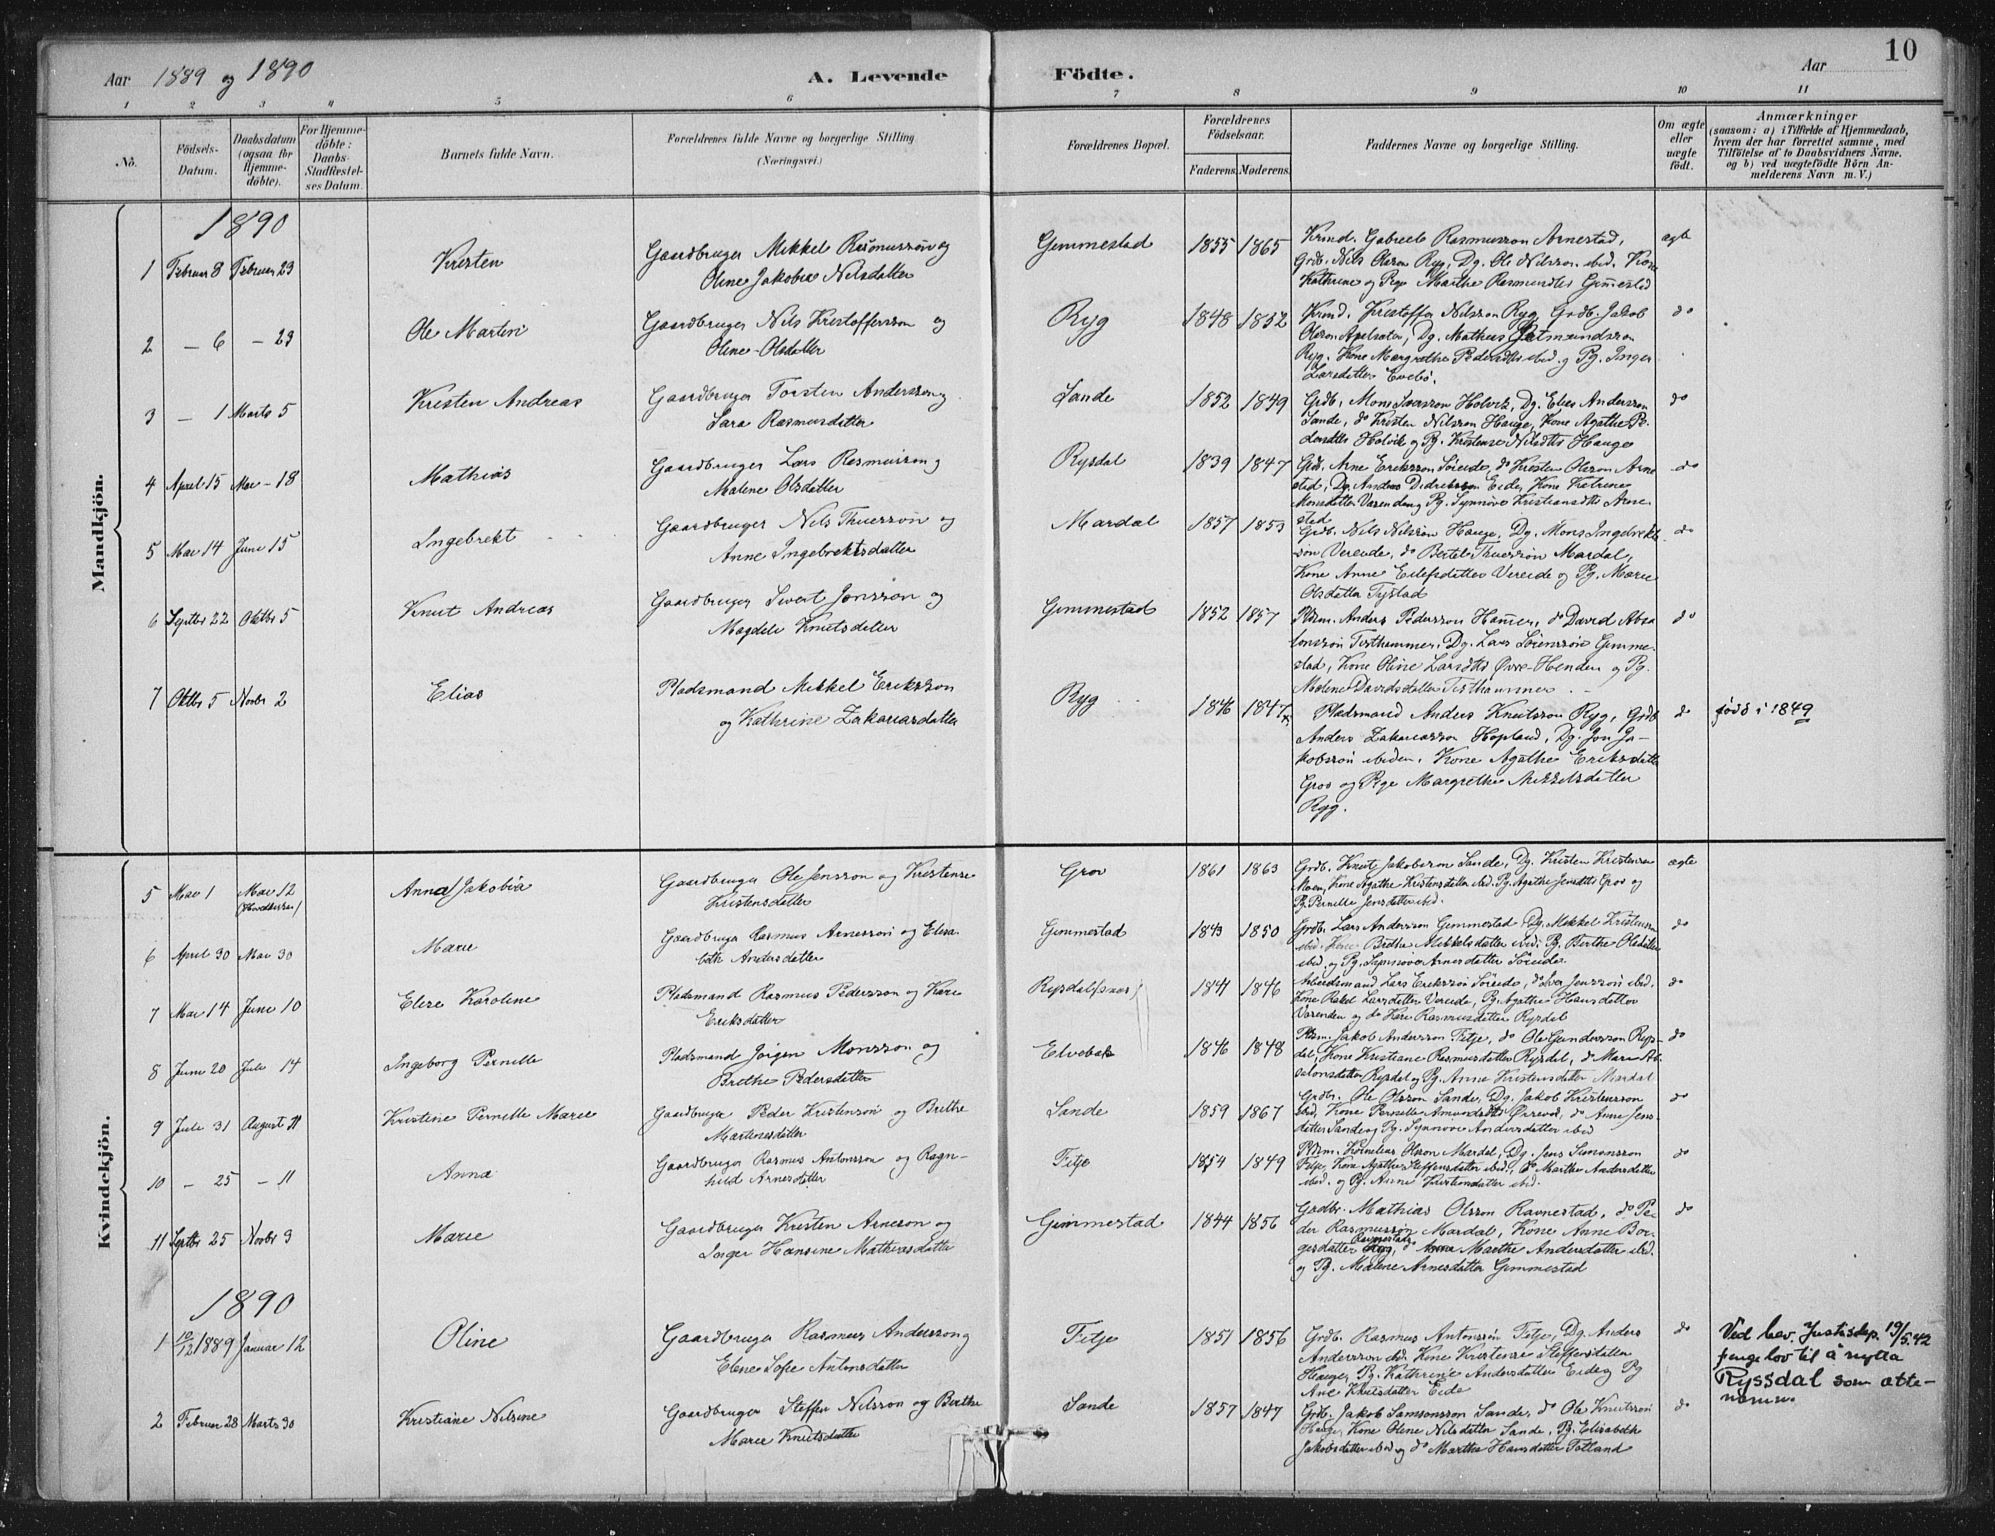 10
Aar 1889 og 1890
A. Levende Födte.
Aar
1 2 3 4 5 6 7 8 9 10 11
No.
Fødsels-Datum.
Daabsdatum (ogsaa for Hjemmedöbte).
For Hjemmedöbte: Daabs-Stadfæstelses Datum.
Barnets fulde Navn.
Forældrenes fulde Navne og borgerlige Stilling (Næringsvei.)
Forældrenes Bopæl.
Forældrenes Födselsaar.
Faderens. Moderens.
Faddernes Navne og borgerlige Stilling.
Om ægte eller uægte födt.
Anmærkninger
(saasom: a) i Tilfælde af Hjemmedaab, hvem der har forrettet samme, med Tilføielse af to Daabsvidners Navne, og b) ved uægtefødte Börn Anmelderens Navn m. V.)
Mandkjön.
1890
1 Februar 8 Februar 23 Kristen Gaardbruger Mikkel Rasmussön og Oline Jakobia Nilsdatter Gimmestad 1855 1865 Gabriel Rasmusson Arnestad, Grdb. Nils Olson Ryg, Dg. Ole Nilsson ibid. Kone Kathrine og Pige Marthe Rasmusdtr Gimmestad ægte
2 — 6 — 23 Ole Martin Gaardbruger Nils Kristoffersson og Oline Olsdatter Ryg 1848 1852 Kristoffer Nilsson Ryg, Grdb. Jakob Olson Apelsæter, Dg. Mathias Ryg, Kone Margrethe Pedersdtr ibid og Pg. Inger Larsdatter Evebö. do
3 — 1 Marts 5 Kristen Andreas Gaardbruger Torsten Andersson og Sara Rasmusdatter Sande 1852 1849 Grdb. Mons Holvik, Dg. Elias Andersson Sande, do Kristen Nilsson Hauge, Kone Agathe Pedersdtr Holvik og Pg. Kristense Nilsdtr Hauge do
4 April 15 Mai 18 Mathias Gaardbruger Lars Rasmusson og Malene Olsdatter Rysdal 1839 1847 Grdb. Arne Eriksson Söreide, do Kristen Olson Arnestad, Dg. Anders Didrikson Eide, Kone Katrine Monsdatter Varendeng Pg. Synnöve Kristiansdtr Arnestad do
5 Mai 14 Juni 15 Ingebrekt Gaardbruger Nils Thuesson og Anne Ingebrektsdatter Mardal 1857 1853 Grdb. Nils Nilsson Hauge, Dg. Mons Ingebrektsson Vereide, do Bertel Thuesson Mardal, Kone Anne Eilefsdatter Vereide og Pg. Marie Olsdatter Tystad do
6 Septbr 22 Oktbr 5 Knut Andreas Gaardbruger Sivert Jonsson og Magdeli Knutsdatter Gimmestad 1852 1857 Pldsm. Anders Pedersson Hamer, do David Absalonssön Tisthammer, Dg. Lars Gimmestad, Kone Oline Larsdtr Övre-Henden og Pg. Malene Davidsdatter Tisthammer do
7 Oktbr 5 Novbr 2 Elias Pladsmand Mikkel Eriksson og Kathrine Zakariasdatter Ryg 1846 1847x Pladsmand Anders Knutsson Ryg, Grdb Anders Zakariasson Hopland, Dg. Jon Jakobsson ibiden, Kone Agathe Eriksdatter Grov og Pige Margrethe Mikkelsdatter Ryg. do född i 1849
Kvindekjön.
5 Mai 1 Mai 12 (Hovedkirken) Anna Jakobia Gaardbruger Ole Jensson og Kristense Kristensdatter Grov 1861 1863 Grdb. Knut Jakobson Sande, Dg. Kristen Kristensen Moen, Kone Agathe Kristensdatter ibid. Pg. Agathe Jensdtr Grov og Pg. Pernille Jensdatter ibid. ægte
6 April 30 Mai 30 Marie Gaardbruger Rasmus Arnesson og Elisabeth Andersdatter Gimmestad 1843 1850 Grdb. Lars Andersson Gimmestad, Dg. Mikkel Kristensen ibid. Kone Brithe Mikkelsdatter ibid. Pg. Berthe Olsdatter ibid. og Pg. Synnöve Arnesdatter Söreide. do
7 Mai 14 Juni 10 Elise Karoline Pladsmand Rasmus Pedersson og Kari Eriksdatter Rysdalsnes 1841 1846 Arbeidsmand Lars Eriksson Söreide, do Iver Jensson ibid. Kone Rakel Larsdatter Vereide, Pg. Agathe Hansdatter Varenden og do Kari Rasmusdatter Rysdal do
8 Juni 20 Juli 14 Ingeborg Pernille Pladsmand Jörgen Monsson og Brithe Pedersdatter Elvebak 1846 1848 Pldsm. Jakob Andersson Fitje, do Ole Gundersson Rysdal, Kone Kristiane Rasmusdatter Rysdal, do Mari Absalonsdatter Rysdal og Pg. Anne Kristensdatter Mardal do
9 Juli 31 August 11 Kristine Pernille Marie Gaardbruger Peder Kristensson og Brithe Martinesdatter Sande 1859 1867 Grdbr. Ole Olsson Sande, Dg. Jakob Kristensson ibid, Kone Pernille Amundsdtr Örrevod, do Anne Jensdatter Sande og Pg. Synnöve Andersdatter ibid do
10 — 25 — 11 Anna Gaardbruger Rasmus Antonsson og Ragnhild Arnesdatter Fitje 1854 1849 Pldsm. Kornelius Olson Mardal, Dg. Jens Simonsson Fitje, Kone Agathe Steffensdatter ibid., do Marthe Andersdatter ibid. og Pg. Anne Kristensdatter ibid. do
11 Septbr 25 Novbr 3 Marie Gaardbruger Kristen Arneson og Inger Hansine Mathiasdatter Gimmestad 1844 1856 Grdbr. Mathias Olsson Ravnestad, do Peder Rasmusson Mardal, Kone Anne Börgesdatter Ravnestad, do Marthe Andersdatter ibid. og Pg. Malene Arnesdatter Gimmestad do
1890
1 10/12 1889 Januar 12 Oline Gaardbruger Rasmus Andersson og Eline Sofie Antonsdatter Fitje 1851 1856 Grdb. Rasmus Antonsson Fitje, Dg. Anders Andersson ibid. Kone Kristense Steffensdatter Hauge, Pg. Kathrine Andersdatter Eide og Pg Ane Knutsdatter Eide do Ved bev. Justisdep. 19/5.42 fenge lov til å nytta Ryssdal som ættenamn.
2 Februar 28 Marts 30 Kristiane Nilsine Gaardbruger Steffen Nilsson og Berthe Marie Knutsdatter Sande 1857 1847 Grdb. Jakob Samsonsson Sande, do Ole Knutsson Hauge, Kone Oline Nilsdatter Sande, Pg. Elisabeth Jakobsdatter ibid og do Marthe Hansdatter Totland do